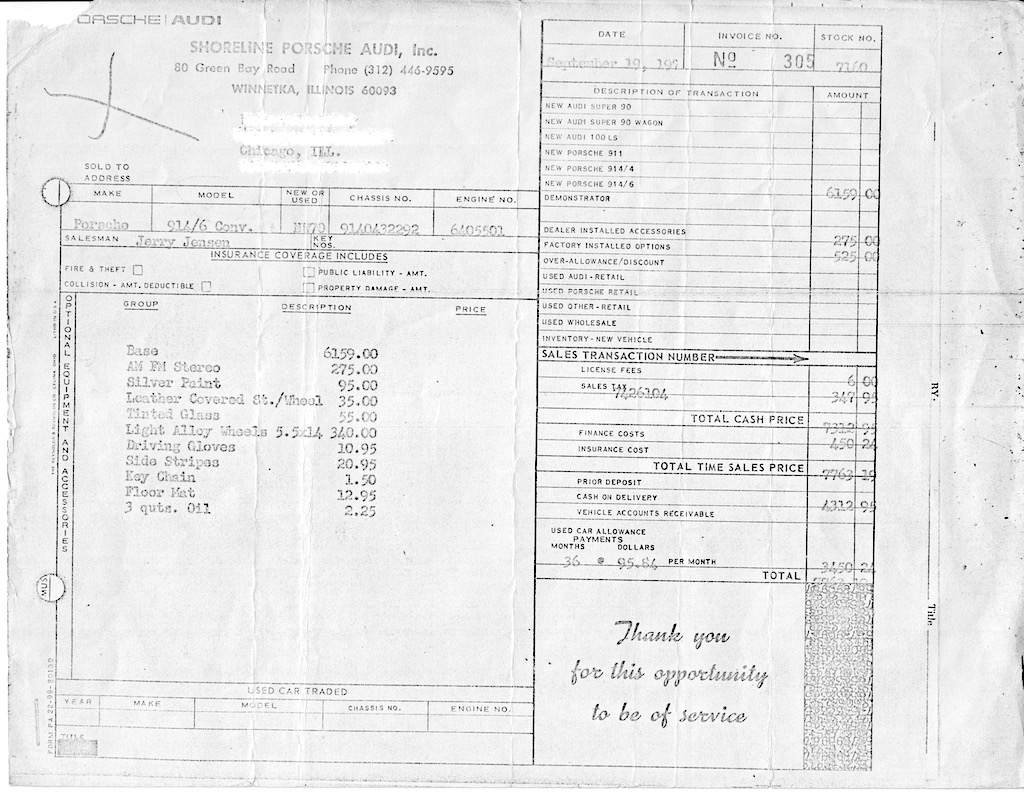 PORSCHE | AUDI
SHORELINE PORSCHE AUDI, Inc.
80 Green Bay Road Phone (312) 446-9595
WINNETKA, ILLINOIS 60093
Chicago, ILL.
SOLD TO
ADDRESS
DATE INVOICE NO. STOCK NO.
September 19, 197 Nº 305 7160
MAKE MODEL NEW OR USED CHASSIS NO. ENGINE NO.
Porsche 914/6 Conv. 9140432292 6405501
SALESMAN Jerry Jensen KEY NOS.
INSURANCE COVERAGE INCLUDES
FIRE & THEFT PUBLIC LIABILITY - AMT.
COLLISION - AMT. DEDUCTIBLE PROPERTY DAMAGE - AMT.
OPTIONAL EQUIPMENT AND ACCESSORIES
GROUP DESCRIPTION PRICE
Base 6159.00
AM FM Stereo 275.00
Silver Paint 95.00
Leather Covered St./Wheel 35.00
Tinted Glass 55.00
Light Alloy Wheels 5.5x14 340.00
Driving Gloves 10.95
Side Stripes 20.95
Key Chain 1.50
Floor Mat 12.95
3 quts. Oil 2.25
USED CAR TRADED
YEAR MAKE MODEL CHASSIS NO. ENGINE NO.
TITLE
DESCRIPTION OF TRANSACTION AMOUNT
NEW AUDI SUPER 90
NEW AUDI SUPER 90 WAGON
NEW AUDI 100 LS
NEW PORSCHE 911
NEW PORSCHE 914/4
NEW PORSCHE 914/6 6159 00
DEMONSTRATOR
DEALER INSTALLED ACCESSORIES
FACTORY INSTALLED OPTIONS 275 00
OVER-ALLOWANCE/DISCOUNT 525 00
USED AUDI - RETAIL
USED PORSCHE RETAIL
USED OTHER - RETAIL
USED WHOLESALE
INVENTORY - NEW VEHICLE
SALES TRANSACTION NUMBER
LICENSE FEES 6 00
SALES TAX 347 95
7426104
TOTAL CASH PRICE 7312 95
FINANCE COSTS 450 24
INSURANCE COST
TOTAL TIME SALES PRICE 7763 19
PRIOR DEPOSIT
CASH ON DELIVERY 4312 95
VEHICLE ACCOUNTS RECEIVABLE
USED CAR ALLOWANCE
PAYMENTS
MONTHS DOLLARS
36 @ 95.84 PER MONTH 3450 24
TOTAL
Thank you
for this opportunity
to be of service
BY.
Title
MUS